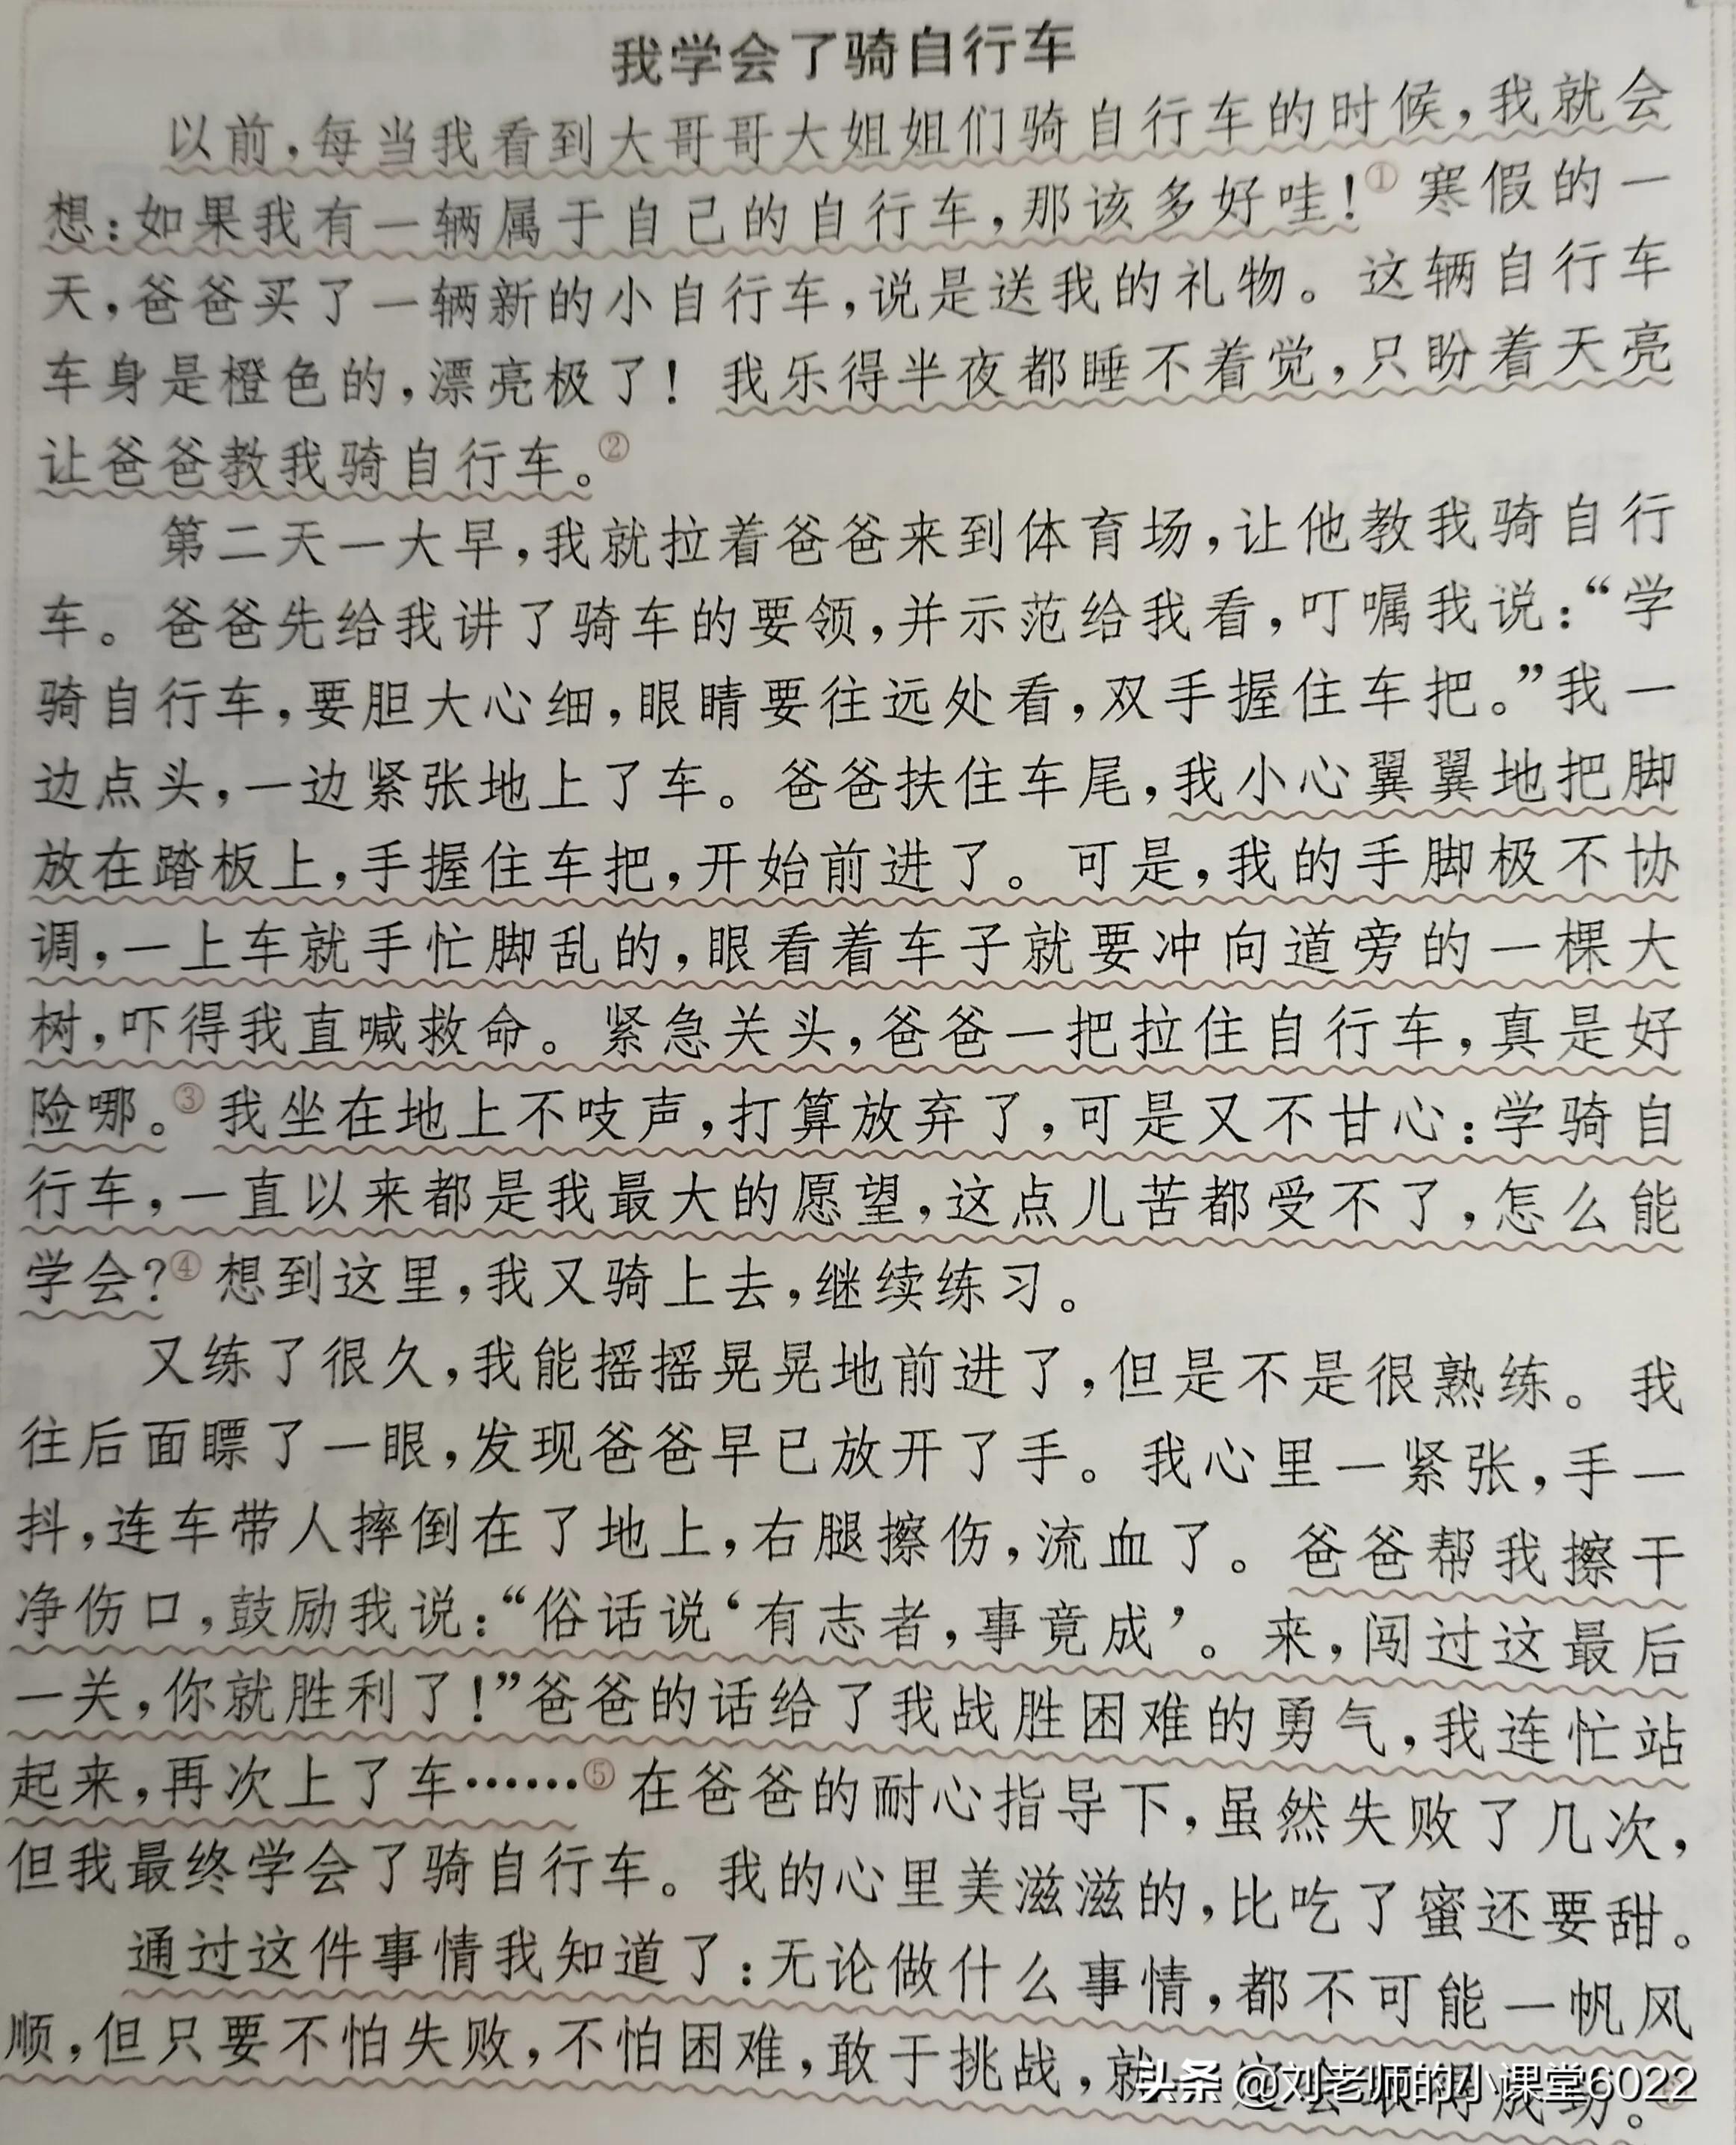 我学会了骑自行车
以前,每当我看到大哥哥大姐姐们骑自行车的时候,我就会
想:如果我有一辆属于自己的自行车,那该多好哇!① 寒假的一
天,爸爸买了一辆新的小自行车,说是送我的礼物。这辆自行车
车身是橙色的,漂亮极了! 我乐得半夜都睡不着觉,只盼着天亮
让爸爸教我骑自行车。②
第二天一大早,我就拉着爸爸来到体育场,让他教我骑自行
车。爸爸先给我讲了骑车的要领,并示范给我看,叮嘱我说:“学
骑自行车,要胆大心细,眼睛要往远处看,双手握住车把。”我一
边点头,一边紧张地上了车。爸爸扶住车尾,我小心翼翼地把脚
放在踏板上,手握住车把,开始前进了。可是,我的手脚极不协
调,一上车就手忙脚乱的,眼看着车子就要冲向道旁的一棵大
树,吓得我直喊救命。紧急关头,爸爸一把拉住自行车,真是好
险哪。③ 我坐在地上不吱声,打算放弃了,可是又不甘心:学骑自
行车,一直以来都是我最大的愿望,这点儿苦都受不了,怎么能
学会?④ 想到这里,我又骑上去,继续练习。
又练了很久,我能摇摇晃晃地前进了,但是不是很熟练。我
往后面瞟了一眼,发现爸爸早已放开了手。我心里一紧张,手一
抖,连车带人摔倒在了地上,右腿擦伤,流血了。爸爸帮我擦干
净伤口,鼓励我说:“俗话说‘有志者,事竟成’。来,闯过这最后
一关,你就胜利了!”爸爸的话给了我战胜困难的勇气,我连忙站
起来,再次上了车……⑤ 在爸爸的耐心指导下,虽然失败了几次,
但我最终学会了骑自行车。我的心里美滋滋的,比吃了蜜还要甜。
通过这件事情我知道了:无论做什么事情,都不可能一帆风
顺,但只要不怕失败,不怕困难,敢于挑战,就
头条 @刘老师的小课堂6022